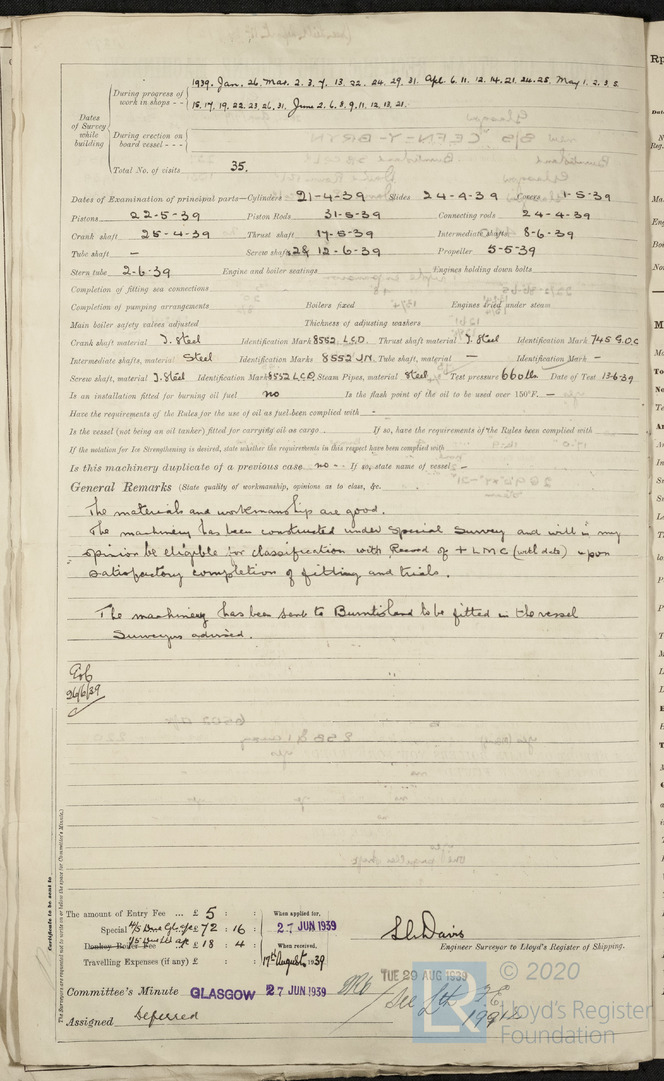 Dates of Survey while building
During progress of work in shops - - 1939. Jan. 26. Mar. 2. 3. 7. 13. 22. 24. 29. 31. Apl. 6. 11. 12. 14. 21. 24. 25. May 1. 2. 3. 8
15. 17. 19. 22. 23. 26. 31. June 2. 6. 8. 9. 11. 12. 13. 21.
During erection on board vessel - - -
Total No. of visits 35.
Dates of Examination of principal parts—Cylinders 21-4-39 Slides 24-4-39 Covers 1-5-39
Pistons 22-5-39 Piston Rods 31-5-39 Connecting rods 24-4-39
Crank shaft 25-4-39 Thrust shaft 17-5-39 Intermediate shafts 8-6-39
Tube shaft - Screw shaft 12-6-39 Propeller 5-5-39
Stern tube 2-6-39 Engine and boiler seatings Engines holding down bolts
Completion of fitting sea connections
Completion of pumping arrangements Boilers fixed Engines tried under steam
Main boiler safety valves adjusted Thickness of adjusting washers
Crank shaft material I. Steel Identification Mark 8552. L.C.D. Thrust shaft material I. Steel Identification Mark 745 G.O.C
Intermediate shafts, material Steel Identification Marks 8552 J.N. Tube shaft, material - Identification Mark -
Screw shaft, material I. Steel Identification Mark 8552 L.C.D. Steam Pipes, material Steel Test pressure 660 lbs Date of Test 13-6-39
Is an installation fitted for burning oil fuel no Is the flash point of the oil to be used over 150°F. -
Have the requirements of the Rules for the use of oil as fuel been complied with -
Is the vessel (not being an oil tanker) fitted for carrying oil as cargo If so, have the requirements of the Rules been complied with
If the notation for Ice Strengthening is desired, state whether the requirements in this respect have been complied with
Is this machinery duplicate of a previous case no - If so, state name of vessel -
General Remarks (State quality of workmanship, opinions as to class, &c.
The materials and workmanship are good.
The machinery has been constructed under Special Survey and will in my
opinion be eligible for classification with Record of + LMC (with date) upon
satisfactory completion of fitting and trials.
The machinery has been sent to Burntisland to be fitted in the vessel
Surveyors advised.
26/6/39
Certificate to be sent to
The Surveyors are requested not to write on or below the space for Committee's Minute.
The amount of Entry Fee ... £ 5 : :
Special £ 72 : 16
Donkey Boiler Fee £ 18 : 4
Travelling Expenses (if any) £ : :
When applied for,
27 JUN 1939
When received,
17th August 1939
Engineer Surveyor to Lloyd's Register of Shipping.
Committee's Minute GLASGOW 27 JUN 1939
TUE 29 AUG 1939
Assigned Deferred
© 2020
LR
Lloyd's Register
Foundation